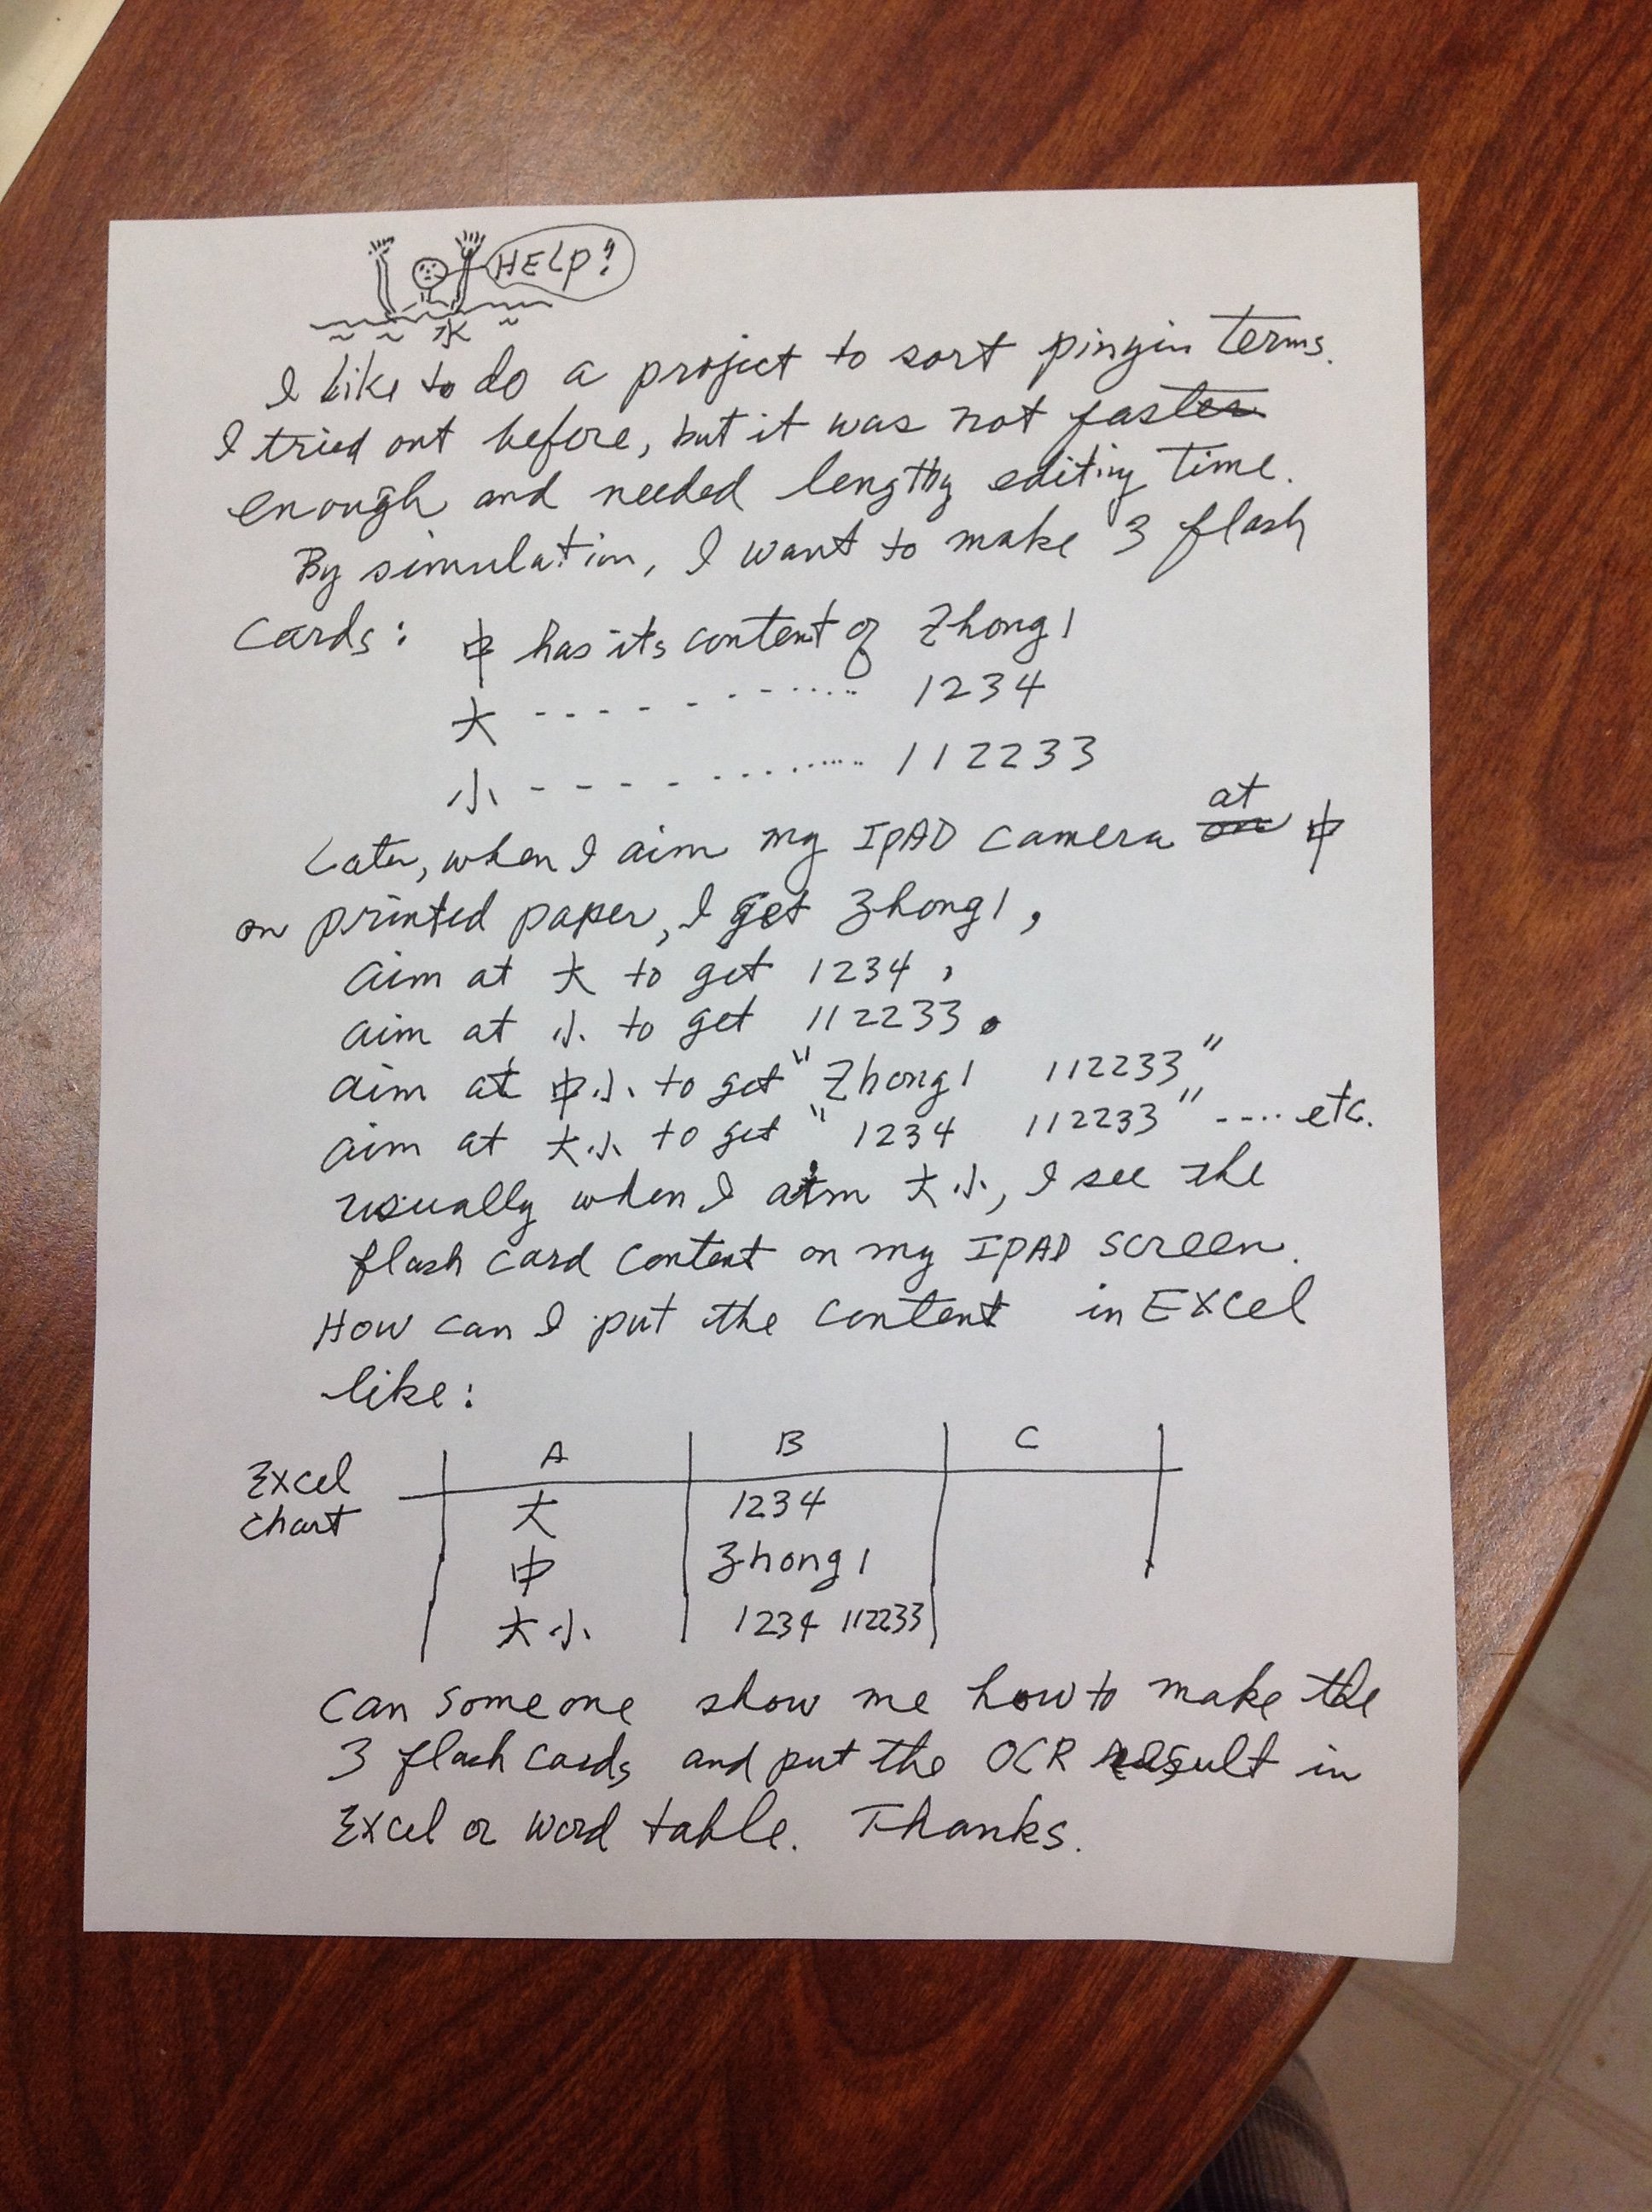 HELP!
水
I like to do a project to sort pinyin terms.
I tried out before, but it was not faster
enough and needed lengthy editing time.
By simulation, I want to make 3 flash
cards: 中 has its content of Zhong1
大 - - - - - - - ...... 1234
小 - - - - - ......... 112233
Later, when I aim my IPAD camera on at 中
on printed paper, I get Zhong1,
aim at 大 to get 1234,
aim at 小 to get 112233.
aim at 中小 to get "Zhong1 112233"
aim at 大小 to get "1234 112233" ---- etc.
usually when I aim 大小, I see the
flash card content on my IPAD screen.
How can I put the content in Excel
like:
A B C
Excel chart 大 1234
中 Zhong1
大小 1234 112233
Can someone show me how to make the
3 flash cards and put the OCR result in
Excel or word table. Thanks.